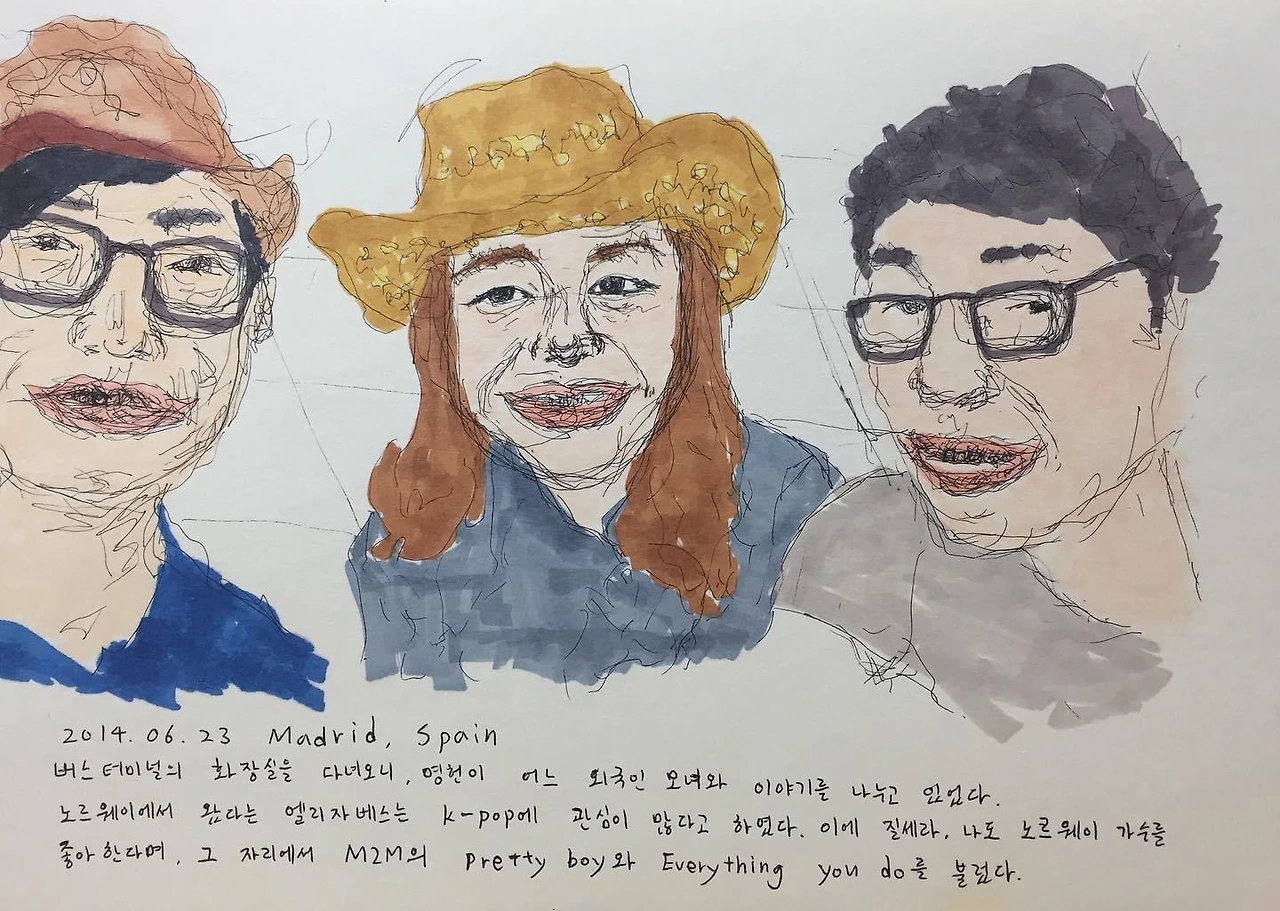 2014. 06. 23 Madrid, Spain
버스터미널의 화장실을 다녀오니, 명헌이 어느 외국인 모녀와 이야기를 나누고 있었다.
노르웨이에서 왔다는 엘리자베스는 k-pop에 관심이 많다고 하였다. 이에 질세라, 나도 노르웨이 가수를
좋아한다며, 그 자리에서 M2M의 Pretty boy와 Everything you do를 불렀다.